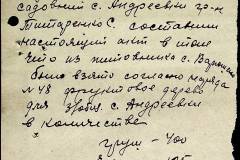 садовий с. Андреевки гр-н
Титаренко С. составили
настоящий акт в том
что из питомника с.
было взято согласно наряда
№ 48 фруктовое дерево
для с. Андреевки
в количестве
груш - 400